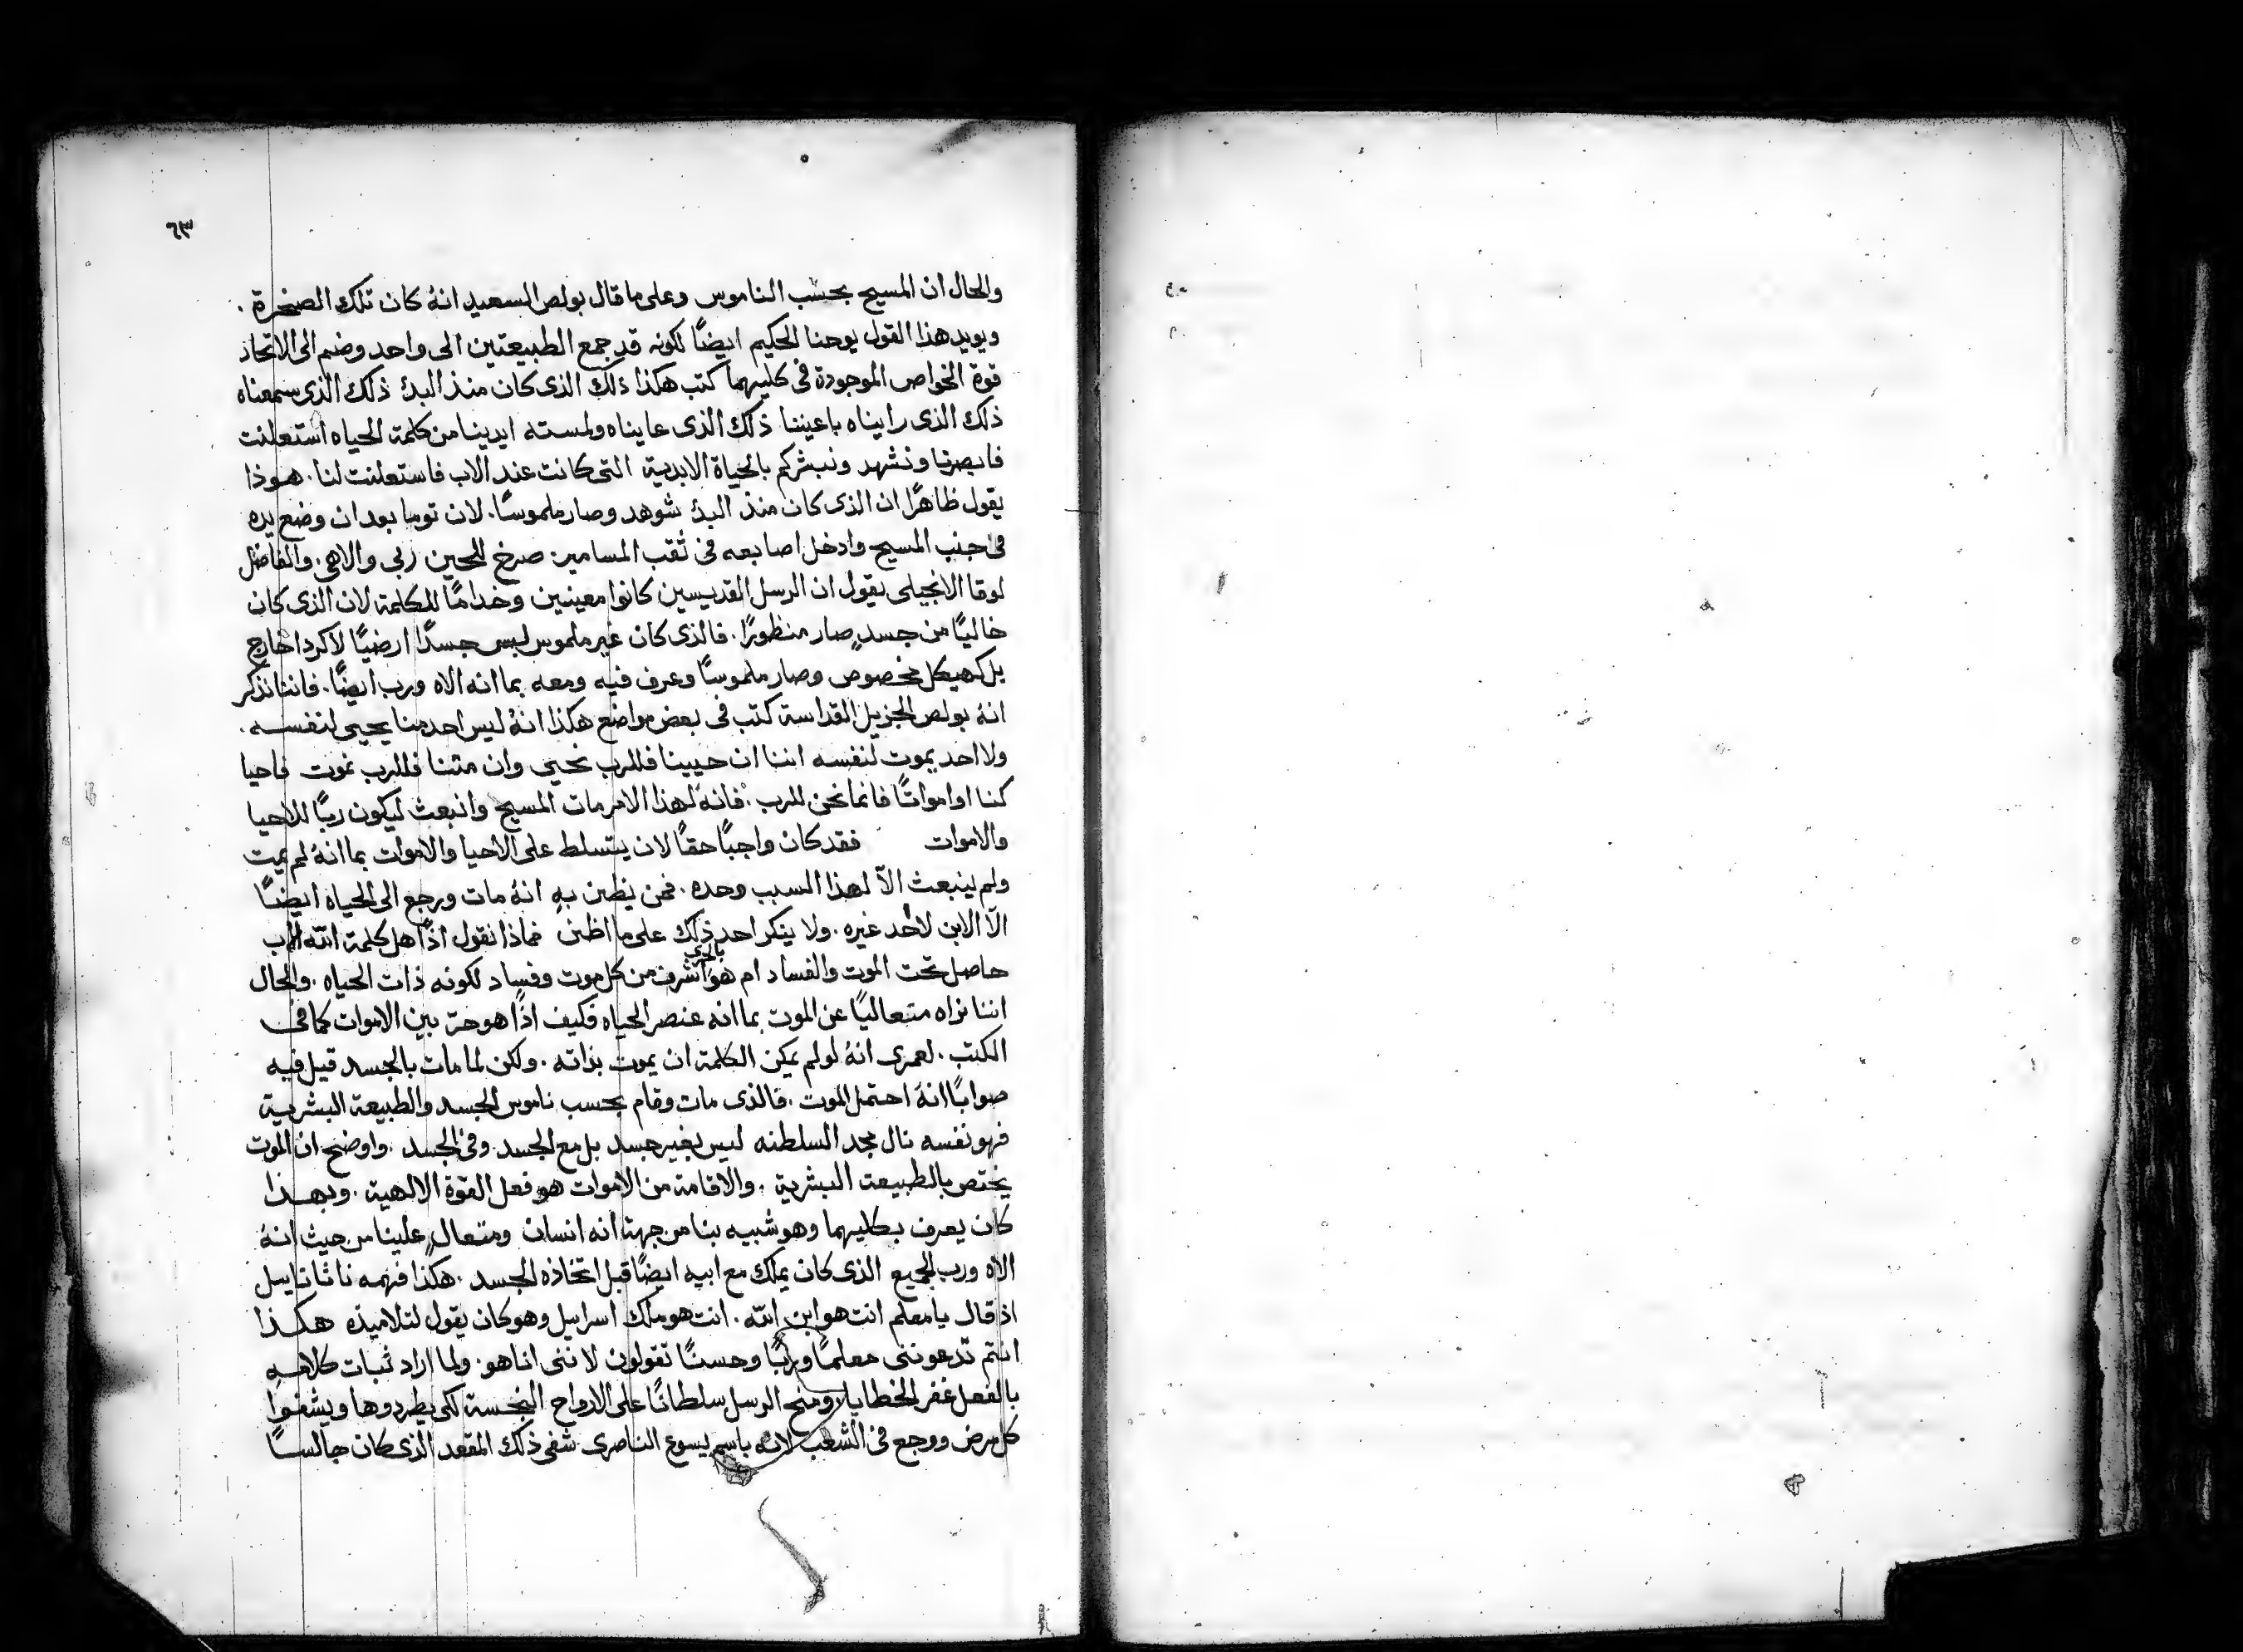 ٦٣
والحال ان المسيح بحسب الناموس وعلى ما قال بولص السعيد انهُ كان تلك الصخرة .
ويويد هذا القول يوحنا الحكيم ايضًا لكونه قد جمع الطبيعتين الى واحد وضم الى الاتحاد
قوة الخواص الموجودة فى كليهما كتب هكذا ذلك الذى كان منذ البدؤ ذلك الذى سمعناه
ذلك الذى رايناه باعيننا ذلك الذى عايناه ولمسته ايدينا من كلمة الحياه استعلنت
فابصرنا ونشهد ونبشركم بالحياة الابدية التى كانت عند الاب فاستعلنت لنا . هوذا
يقول ظاهرًا ان الذى كان منذ البدؤ شوهد وصار ملموسًا . لان توما بعد ان وضع يده
فى جنب المسيح وادخل اصابعه فى ثقب المسامير صرخ للحين ربى والاهى . والفاضل
لوقا الانجيلى يقول ان الرسل القديسين كانوا معينين وخدامًا للكلمة لان الذى كان
خاليًا من جسدٍ صار منظورًا . فالذى كان غير ملموس لبس جسدًا ارضيًا لا كردا خارج
بل كهيكل مخصوص وصار ملموسًا وعرف فيه ومعه بما انه الاه ورب ايضًا . فاننا نذكر
انهُ بولص الجزيل القداسة كتب فى بعض مواضع هكذا انهُ ليس احد منا يحيى لنفسه .
ولا احد يموت لنفسه اننا ان حيينا فللرب نحيى وان متنا فللرب نموت فاحيا
كنا او امواتًا فانما نحن للرب . فانهُ لهذا الامر مات المسيح وانبعث ليكون ربًا للاحيا
والاموات فقد كان واجبًا حقًا لان يتسلط على الاحيا والاموات بما انهُ لم يمت
ولم ينبعث الاّ لهذا السبب وحده . فمن يظن بهِ انهُ مات ورجع الى الحياه ايضًا
الاّ الابن لا احد غيره . ولا ينكر احد ذلك على ما اظن فماذا نقول اذًا هل كلمة الله الاب
حاصل تحت الموت والفساد ام هو بالحرى اشرف من كل موت وفساد لكونه ذات الحياه . والحال
اننا نراه متعاليًا عن الموت بما انه عنصر الحياه فكيف اذًا هو حرّ بين الاموات كما فى
الكتب . لعمرى انهُ لو لم يمكن الكلمة ان يموت بذاته . ولكن لما مات بالجسد قيل فيه
صوابًا انهُ احتمل الموت . فالذى مات وقام بحسب ناموس الجسد والطبيعة البشرية
فهو نفسه نال مجد السلطنه ليس بغير جسد بل مع الجسد وفى الجسد . واوضح ان الموت
يختص بالطبيعة البشرية . والاقامة من الاموات هو فعل القوة الالهية . وبهذا
كان يعرف بكليهما وهو شبيه بنا من جهة انه انسان ومتعالٍ علينا من حيث انهُ
الاه ورب الجميع الذى كان يملك مع ابيه ايضًا قبل اتخاذه الجسد . هكذا فهمه ناثاناييل
اذ قال يا معلم انت هو ابن الله . انت هو ملك اسراييل وهو كان يقول لتلاميذه هكذا
انتم تدعوننى معلمًا وربًا وحسنًا تقولون لاننى انا هو . ولما اراد ثبات كلامهِ
بالفعل غفر الخطايا ومنح الرسل سلطانًا على الارواح النجسة لكى يطردوها ويشفوا
كل مرض ووجع فى الشعب لانه باسم يسوع الناصرى شفى ذلك المقعد الذى كان جالسًا